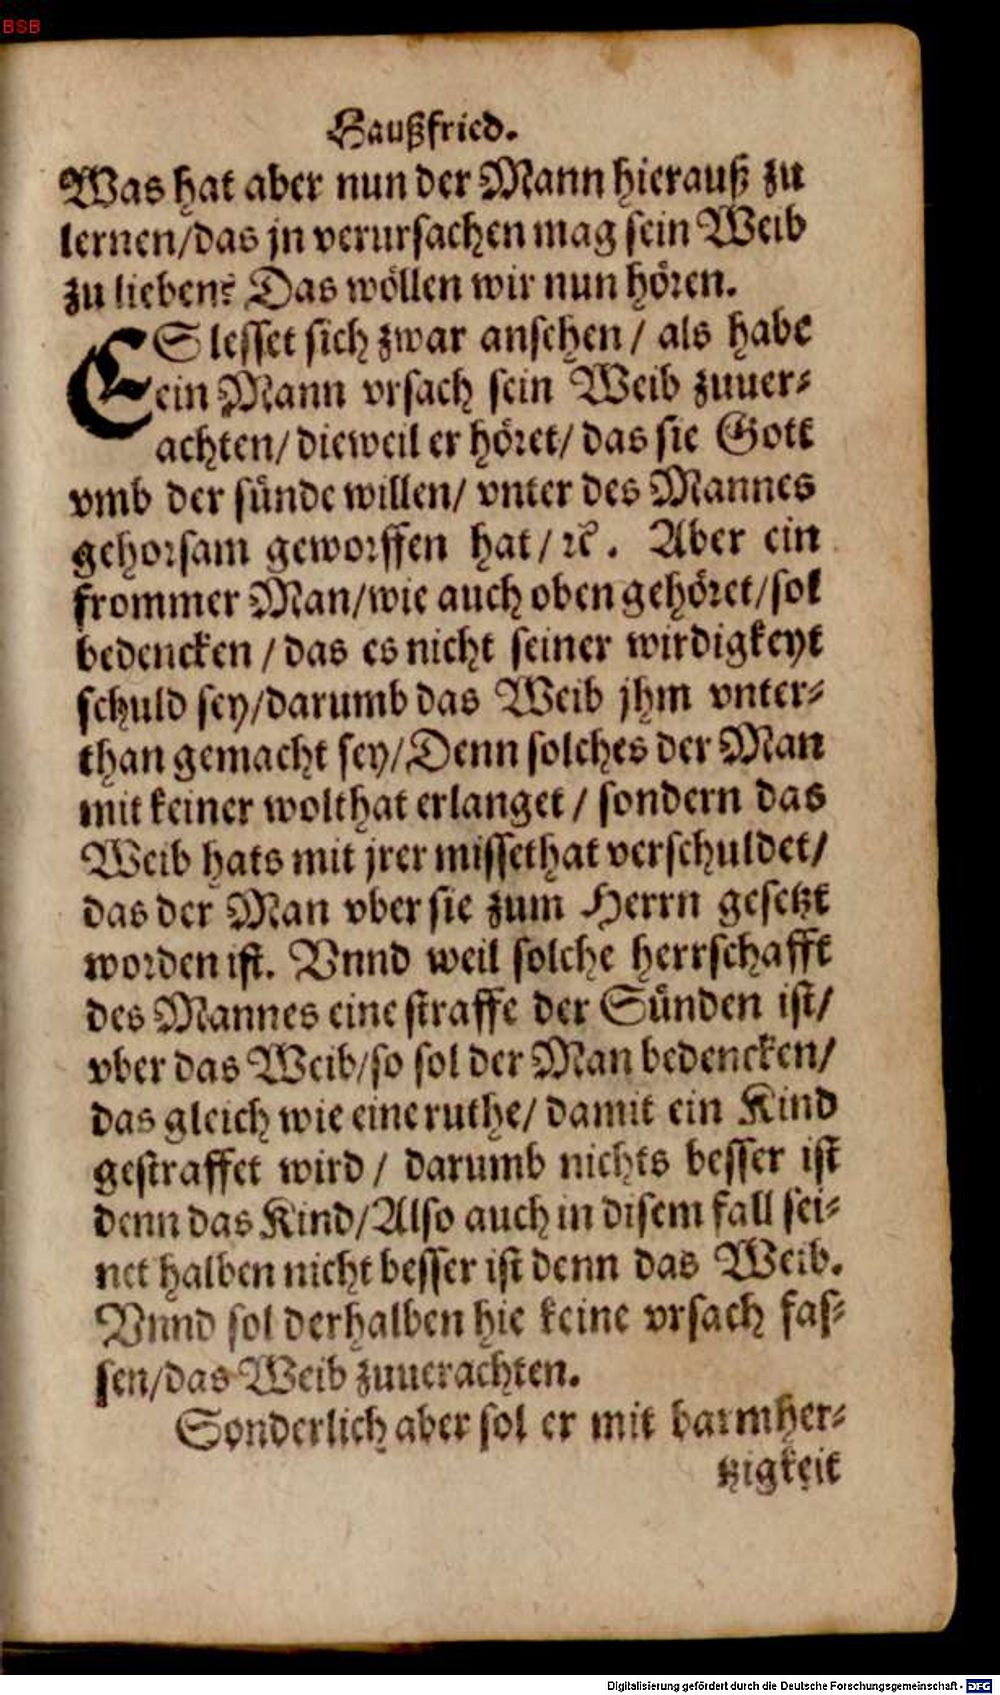 BSB
Haußfried.
Was hat aber nun der Mann hierauß zu
lernen/das jn verursachen mag sein Weib
zu lieben? Das wöllen wir nun hören.
ES lesset sich zwar ansehen / als habe
ein Mann vrsach sein Weib zuuer-
achten/ dieweil er höret/ das sie Gott
vmb der sünde willen/ vnter des Mannes
gehorsam geworffen hat / ꝛc. Aber ein
frommer Man/wie auch oben gehöret/sol
bedencken / das es nicht seiner wirdigkeyt
schuld sey/darumb das Weib jhm vnter-
than gemacht sey/Denn solches der Man
mit keiner wolthat erlanget / sondern das
Weib hats mit jrer missethat verschuldet/
das der Man vber sie zum Herrn gesetzt
worden ist. Vnnd weil solche herrschafft
des Mannes eine straffe der Sünden ist/
vber das Weib/so sol der Man bedencken/
das gleich wie eine ruthe/ damit ein Kind
gestraffet wird / darumb nichts besser ist
denn das Kind/Also auch in disem fall sei-
net halben nicht besser ist denn das Weib.
Vnnd sol derhalben hie keine vrsach fas-
sen/das Weib zuuerachten.
Sonderlich aber sol er mit barmher-
tzigkeit
Digitalisierung gefördert durch die Deutsche Forschungsgemeinschaft - DFG